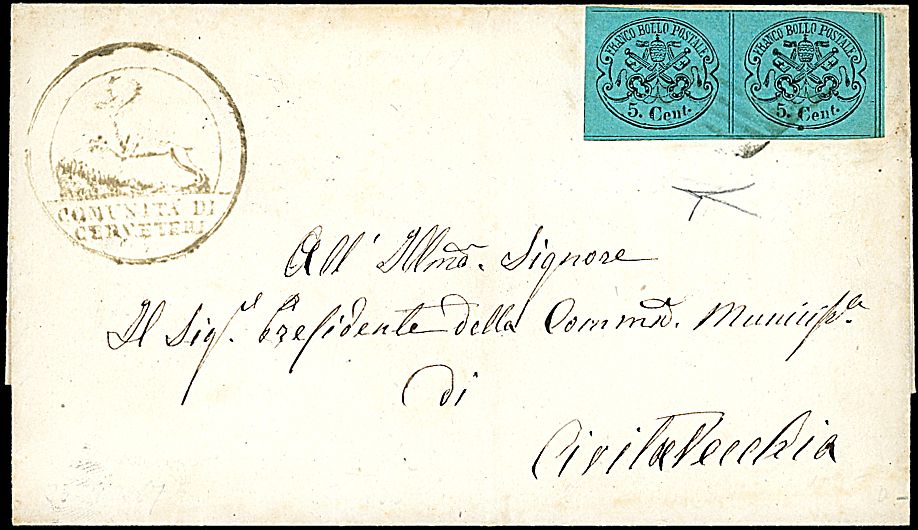 FRANCO BOLLO POSTALE
5. Cent.
FRANCO BOLLO POSTALE
5. Cent.
COMUNITÀ DI
CERVETERI
All' Illmo. Signore
Il Sigr. Presidente della Commne. Municiple.
di
CivitaVecchia